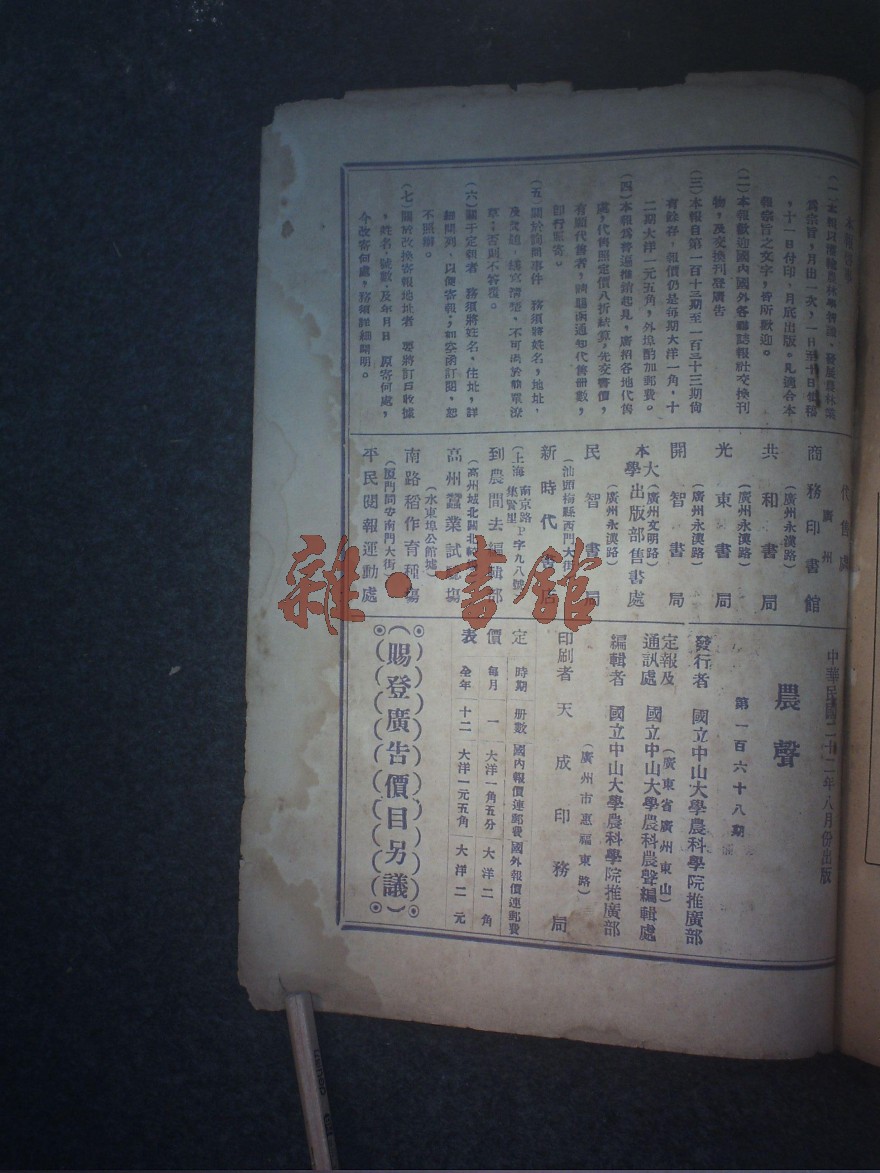 本報啓事
為宗旨,月出一次,一日至十日集稿
,十一日付印,月底出版。凡適合本
報宗旨之文字,皆所歡迎。
(二)本報歡迎國內國外各雜誌報社交換刊
物,及交換刊登廣告
(三)本報自第一百十三期至一百三十三期尚
有餘存,報價仍是每期大洋一角,十
二期大洋一元五角,外埠酌加郵費。
(四)本報為普遍推銷起見,廣招各地代售
處,代售照定價八折結算,先交書價,
有願代售者,請賜函通知代售冊數,
即行照寄。
(五)關於詢問事件 務須將姓名,地址,
及問題,繕寫清楚,不可失於簡單潦
草;否則不答覆。
(六)關于定報者 務須將姓名,住址,詳
細開列,以便寄報;如空函訂閱,恕
不照辦。
(七)關於改換寄報地址者 要將訂戶收據
,姓名,號數,及年月日 原寄何處,
今改寄何處,務須詳細開明。
代售處
廣州
商務印書館
(廣州永漢路)
共和書局
(廣州永漢路)
光東書局
(廣州永漢路)
開智書局
(廣州文明路)
本大學出版部售書處
(廣州永漢路)
民智書局
(汕頭梅縣西門大街)
新時代書店
(上海南京路P字九八號集賢里)
到農間去編輯部
高州蠶業試驗場
(水東埠公館墟)
南路稻作育種場
(廈門同安南門大街)
平民閱報運動處
中華民國二十二年八月份出版
農聲
第一百六十八期
發行者 國立中山大學農科學院推廣部
(廣東省廣州東山)
定報及通訊處 國立中山大學農科農聲編輯處
編輯者 國立中山大學農科學院推廣部
(廣州市惠福東路)
印刷者 天成印務局
定價表
時期 冊數 國內報價連郵費 國外報價連郵費
每月 一 大洋一角五分 大洋二角
全年 十二 大洋一元五角 大洋二元
(賜登廣告價目另議)
雜·書館